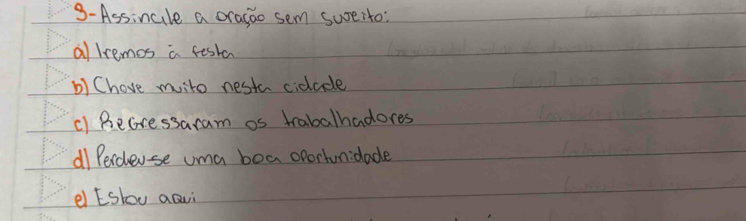 9-Assinale a oração sem sujeito:
a) Iremos à festa
b) Chove muito nesta cidade
c) Regressaram os trabalhadores
d) Perdeu-se uma boa oportunidade
e) Estou aqui